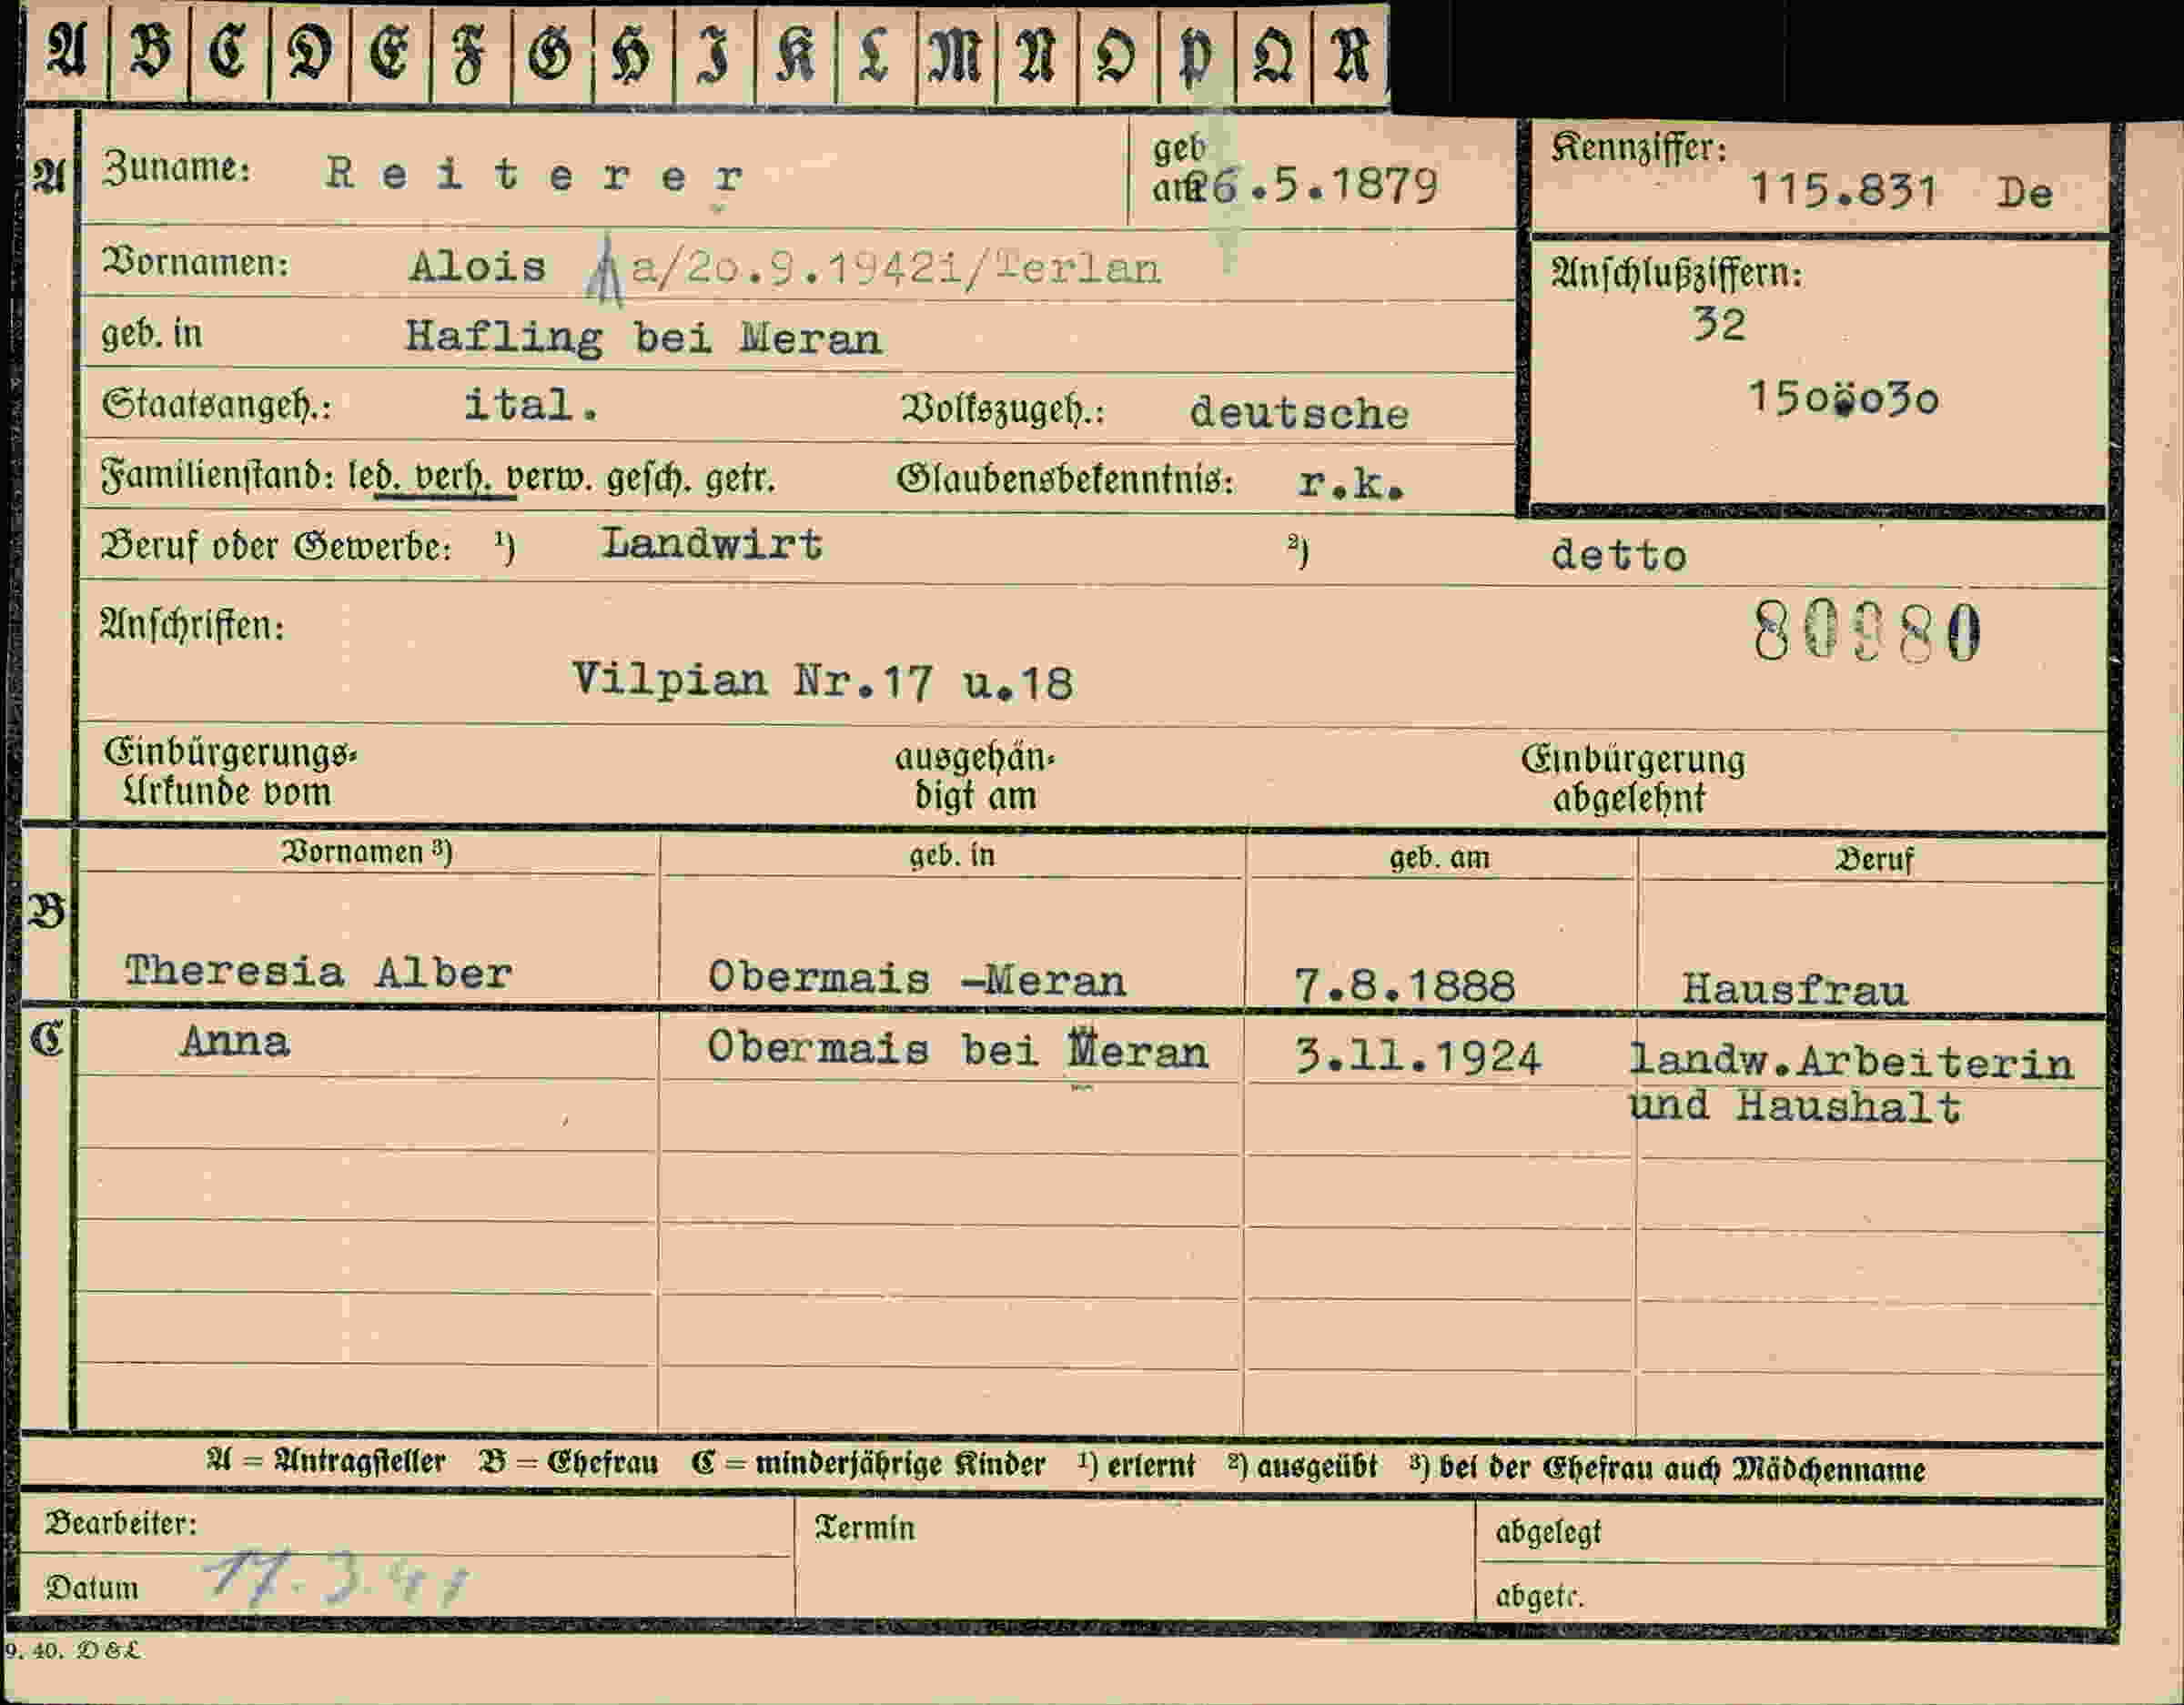 A B C D E F G H I K L M N O P Q R
A Zuname: Reiterer geb am 26.5.1879 Kennziffer: 115.831 De
Vornamen: Alois a/2o.9.1942i/Terlan Anschlußziffern:
32
geb. in Hafling bei Meran
Staatsangeh.: ital. Volkszugeh.: deutsche 15o o3o
Familienstand: led. verh. verw. gesch. getr. Glaubensbekenntnis: r.k.
Beruf oder Gewerbe: ¹) Landwirt ²) detto
Anschriften: 80980
Vilpian Nr.17 u.18
Einbürgerungs- ausgehän- Einbürgerung
Urkunde vom digt am abgelehnt
Vornamen ³) geb. in geb. am Beruf
B
Theresia Alber Obermais -Meran 7.8.1888 Hausfrau
C Anna Obermais bei Meran 3.11.1924 landw.Arbeiterin
und Haushalt
A = Antragsteller B = Ehefrau C = minderjährige Kinder ¹) erlernt ²) ausgeübt ³) bei der Ehefrau auch Mädchenname
Bearbeiter: Termin abgelegt
Datum 17.3.41 abgetr.
9. 40. D & L